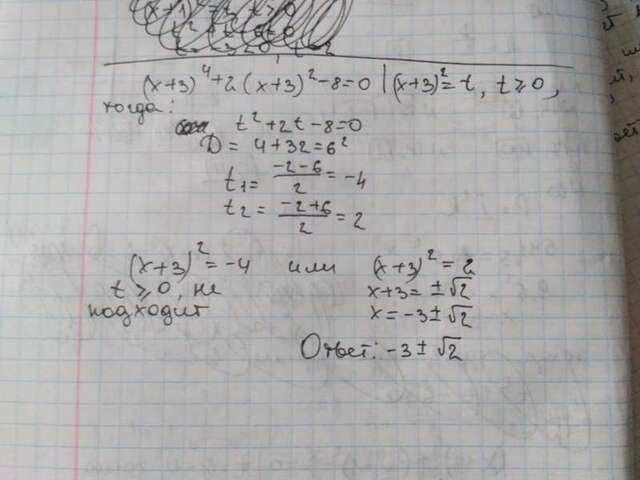 (x+3)⁴+2(x+3)²-8=0 | (x+3)²=t, t≥0,
тогда:
t²+2t-8=0
D = 4+32=6²
t₁= (-2-6)/2 = -4
t₂ = (-2+6)/2 = 2
(x+3)² = -4 или (x+3)² = 2
t ≥ 0, не x+3= ±√2
подходит x=-3±√2
Ответ: -3±√2